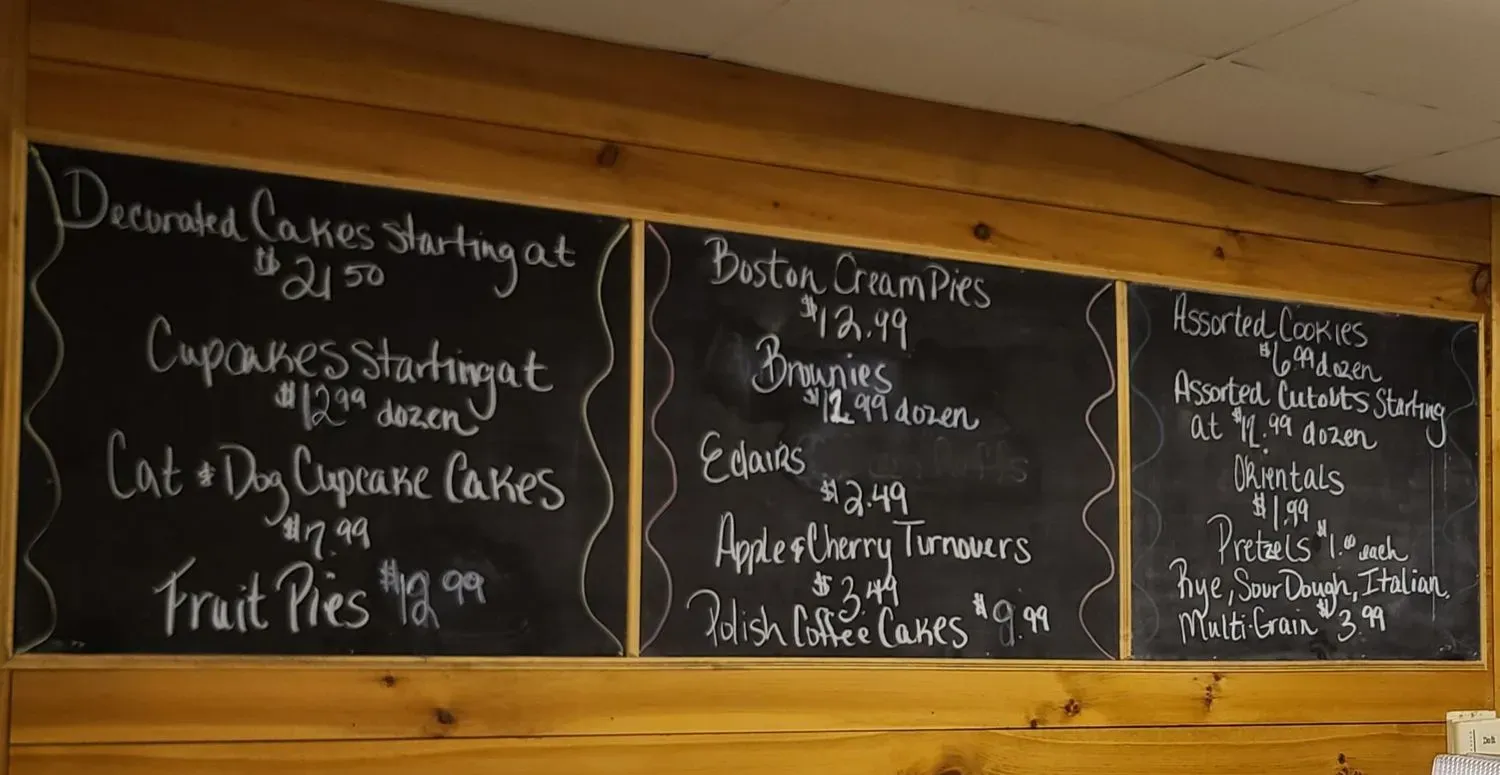 Decorated Cakes starting at
$21 50
Cupcakes starting at
$12 99 dozen
Cat & Dog Cupcake Cakes
$7.99
Fruit Pies $12 99
Boston Cream Pies
$12.99
Brownies
$12.99 dozen
Eclairs
$2.49
Apple & Cherry Turnovers
$3.49
Polish Coffee Cakes $9.99
Assorted Cookies
$6.99 dozen
Assorted Cutouts Starting
at $12.99 dozen
Orientals
$1.99
Pretzels $1.00 each
Rye, Sour Dough, Italian,
Multi-Grain $3.99